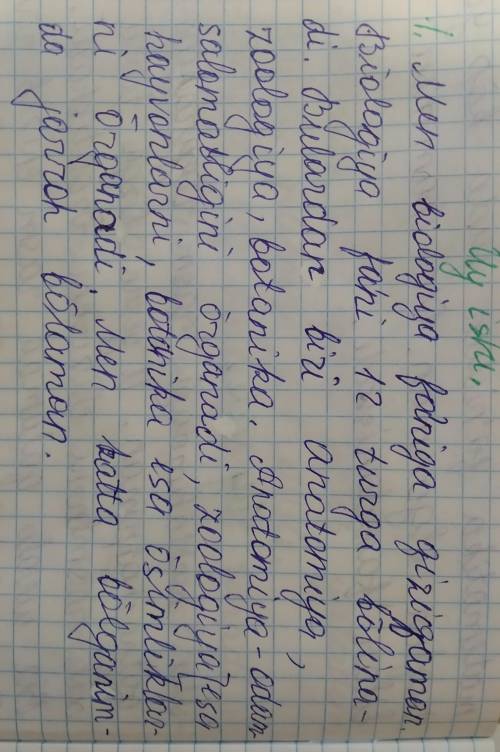 Uy ishi.
1. Men biologiya faniga qiziqaman.
Biologiya fani 12 turga bõlina-
di. Bulardan biri anatomiya,
zoologiya, botanika. Anatomiya - odam
salomatligini õrganadi, zoologiya esa
hayvonlarni, botanika esa õsimliklar-
ni õrganadi. Men katta bõlganim-
da jarroh bõlaman.